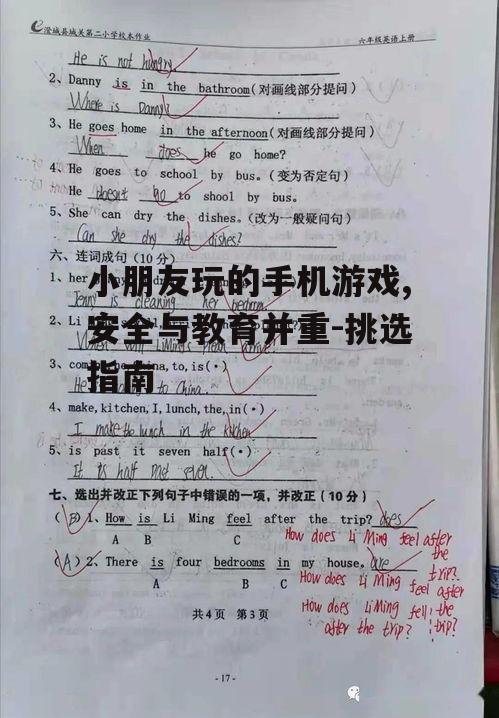 澄城县城关第二小学校本作业 六年级英语上册
He is not hungry
2、Danny is in the bathroom(对画线部分提问)
Where is Danny?
3、He goes home in the afternoon(对画线部分提问)
When does he go home?
4、He goes to school by bus。(变为否定句)
He doesn't go to shool by bus.
5、She can dry the dishes。(改为一般疑问句)
Can she dry the dishes?
六、连词成句(10分)
小朋友玩的手机游戏,
1、her
Jenny is cleaning her bedroom
安全与教育并重-挑选
2、Li
指南
3、com na,to,is(·)
He to China.
4、make,kitchen,I,lunch,the,in(·)
I make the lunch in the kitchen
5、is past it seven half(·)
It is half past seven.
七、选出并改正下列句子中错误的一项,并改正(10分)
(B)1、How is Li Ming feel after the trip? does
A B C
How does Li Ming feel after the trip?
(A)2、There is four bedrooms in my house。are
A B C
How does Li Ming feel after the trip?
How does Li Ming fell after the trip?
共4页 第3页
-17-